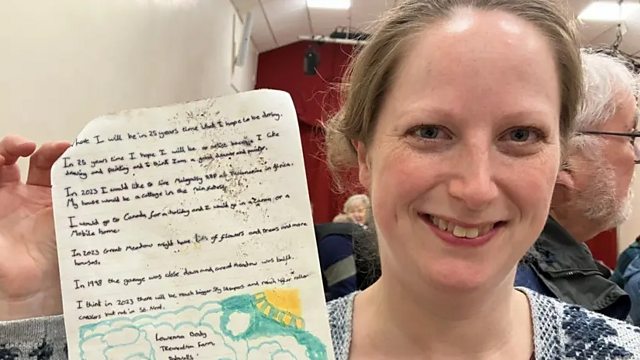 hat I will be in 25 years time What I hope to be doing.
In 25 years time I hope I will be a artist because I like
drawing and painting and I think Iam a good drawer and painter.
In 2023 I would like to live in Africa.
My house would be a cottage in the
I would go to Canada for a holiday and I would go in a or a
Mobile home.
In 2023 Great Meadow might have lots of flowers and trees and more
In 1998 the garage was close down and Meadow was built.
I think in 2023 there will be much bigger Sky Scrapers and much higher roller
coasters but not in St. Neot.
Lowenna
Farm,